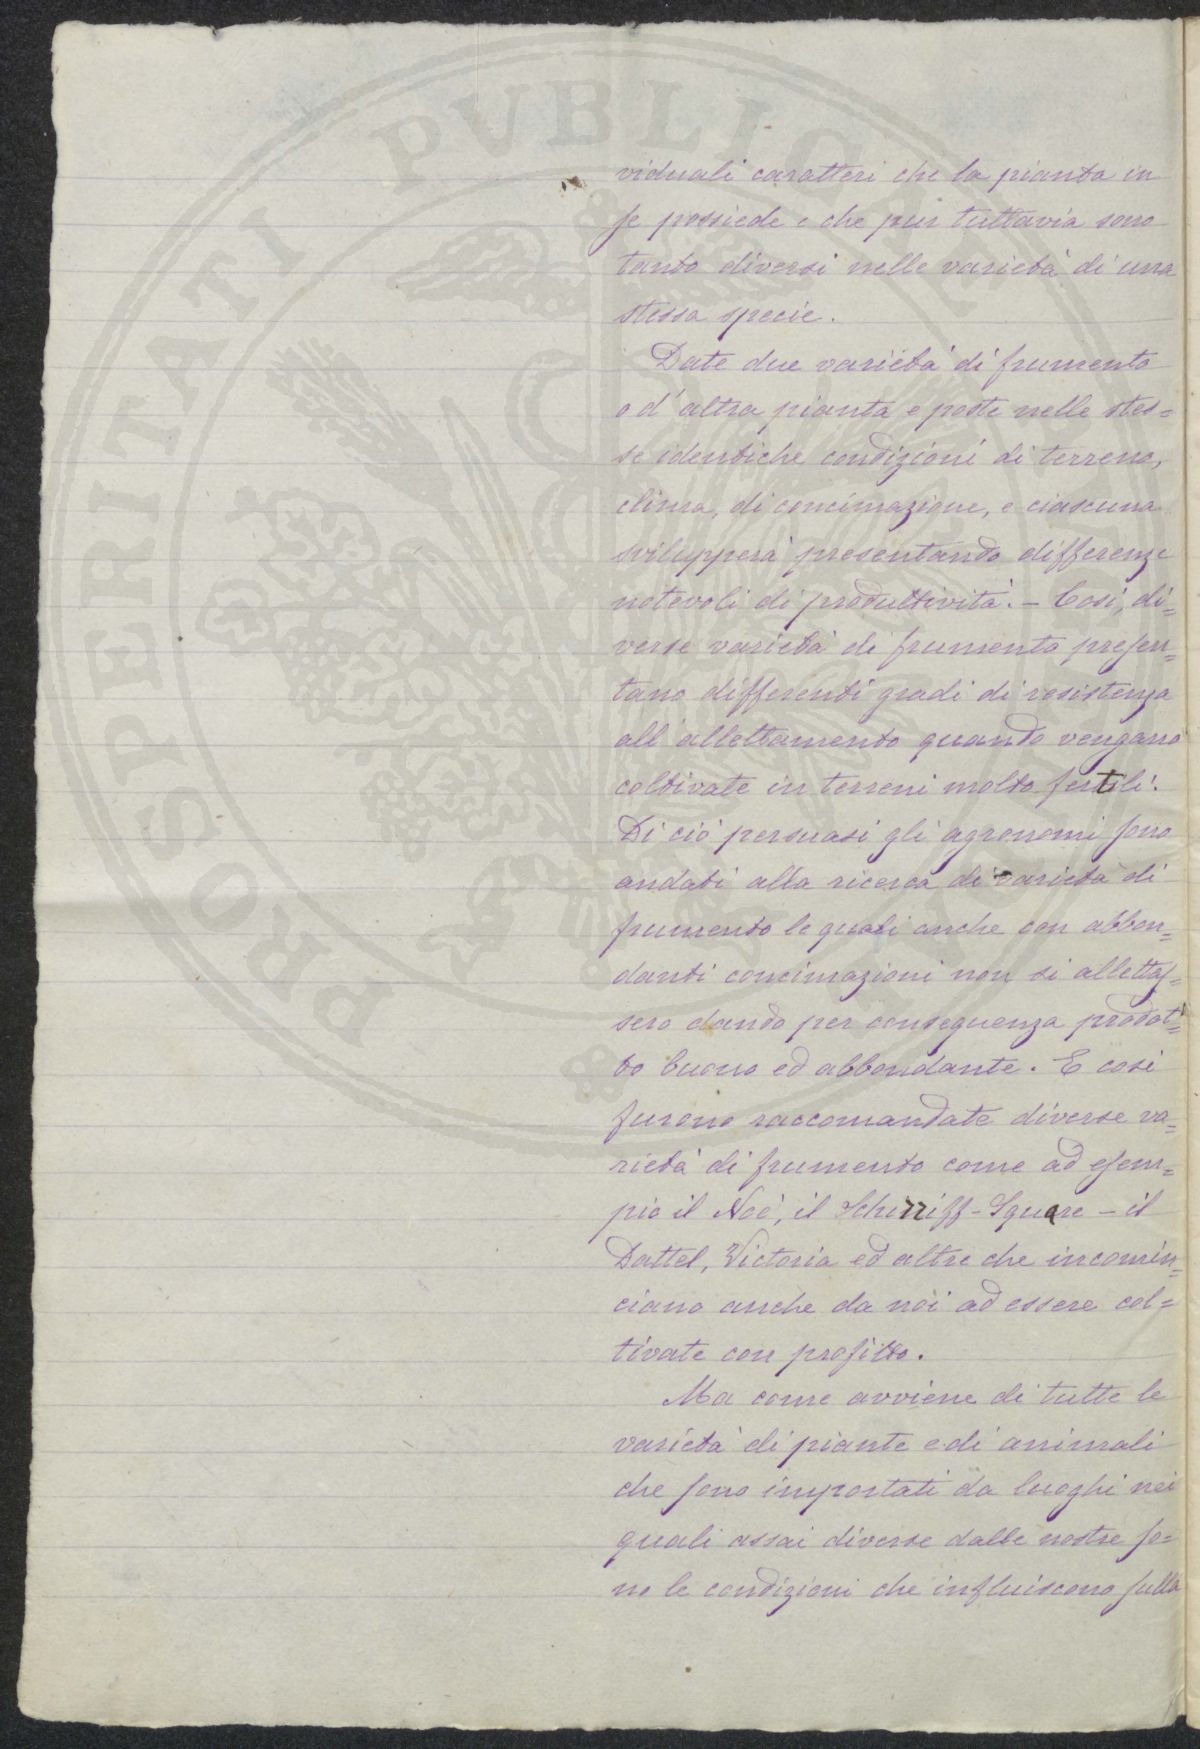 viduali caratteri che la pianta in
se possiede e che pur tuttavia sono
tanto diversi nelle varietà di una
stessa specie.
Date due varietà di frumento
o d'altra pianta e poste nelle stes=
se identiche condizioni di terreno,
clima, di concimazione, e ciascuna
svilupperà presentando differenze
notevoli di produttività. - Così, di=
verse varietà di frumento presen=
tano differenti gradi di resistenza
all'allettamento quando vengano
coltivate in terreni molto fertili.
Di ciò persuasi gli agronomi sono
andati alla ricerca di varietà di
frumento le quali anche con abbon=
danti concimazioni non si allettas=
sero dando per conseguenza prodot=
to buono ed abbondante. E così
furono raccomandate diverse va=
rietà di frumento come ad esem=
pio il Noè, il Scherriff-Square - il
Dattel, Victoria ed altre che incomin=
ciano anche da noi ad essere col=
tivate con profitto.
Ma come avviene di tutte le
varietà di piante e di animali
che sono importati da luoghi nei
quali assai diverse dalle nostre so=
no le condizioni che influiscono sulla
PROSPERITATI PUBLICAE